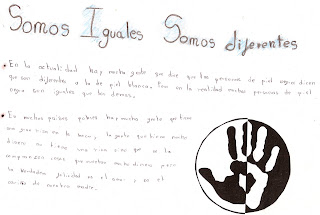 Somos Iguales Somos diferentes
En la actualidad hay mucha gente que dice que las personas de piel negra dicen
que son diferentes a la de piel blanca. Pero en la realidad muchas personas de piel
negra son iguales que los demas.
En muchos paises pobres hay mucha gente que tiene
una gran en la , la gente que tiene mucho
dinero no tiene una que se la
cosas que cuestan mucho dinero pero
la verdadera felicidad es el amor y es el
cariño de nuestra madre.